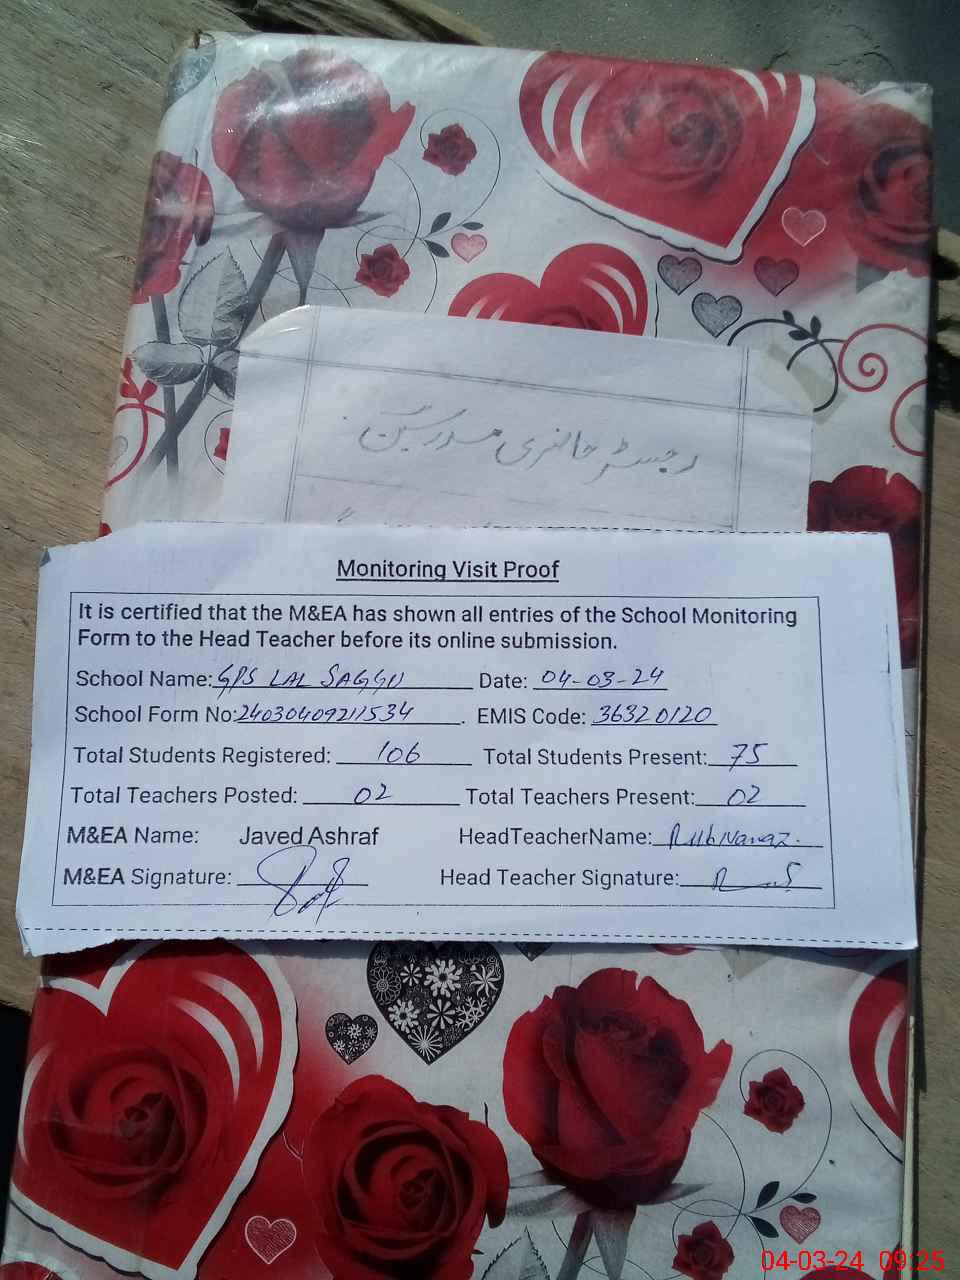 رجسٹر حاضری مدرسین
Monitoring Visit Proof
It is certified that the M&EA has shown all entries of the School Monitoring
Form to the Head Teacher before its online submission.
School Name: GPS LAL SAGGU Date: 04-03-24
School Form No: 24030409211534. EMIS Code: 36320120
Total Students Registered: 106 Total Students Present: 75
Total Teachers Posted: 02 Total Teachers Present: 02
M&EA Name: Javed Ashraf HeadTeacherName:
M&EA Signature: Head Teacher Signature:
04-03-24 09:25